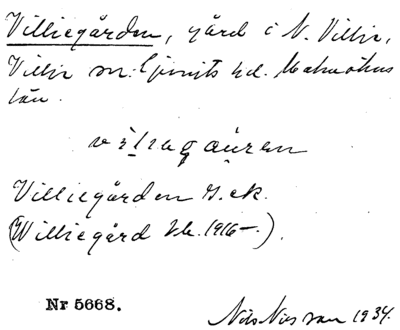 Villiegården, gård i N. Villie,
Villie sn. Ljunits hd. Malmöhus
län.
Villiegården G. ek.
(Williegård Vb. 1916–).
Nr 5668.
Nils Nilsson 1934.